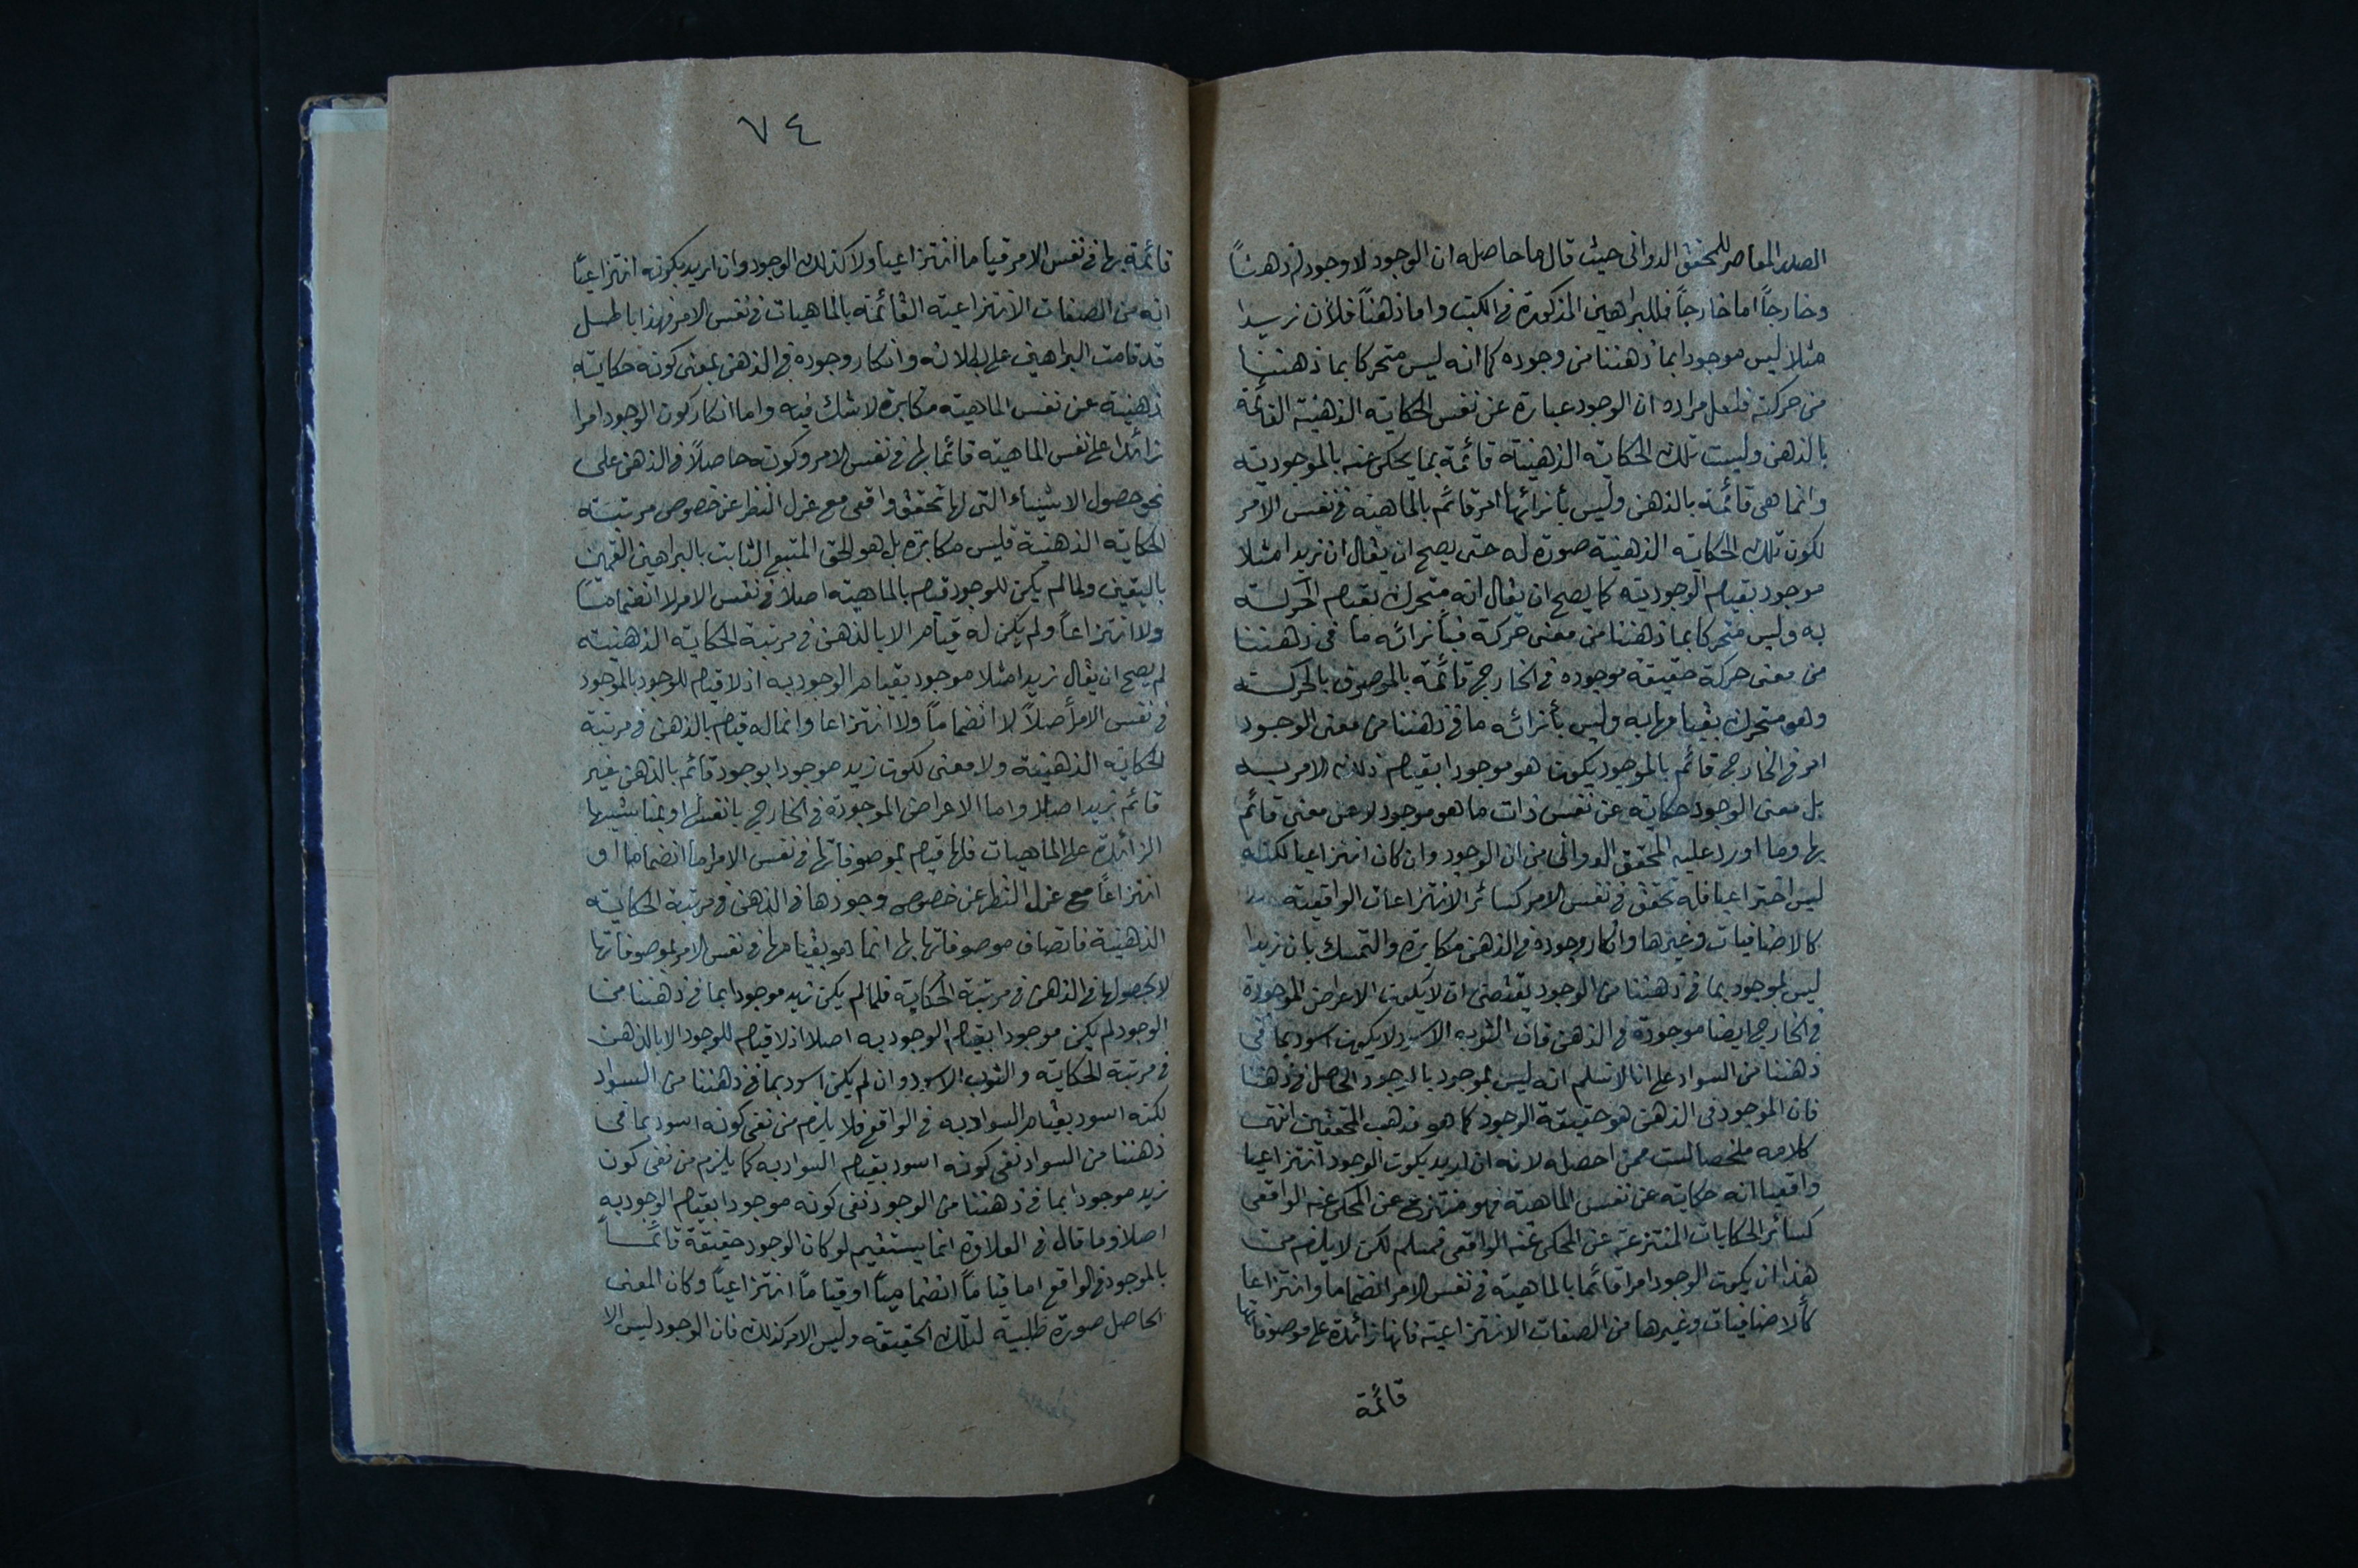 الصدر المعاصر للمحقق الدوانى حيث قال ما حاصله ان الوجود لا وجود له ذهناً
وخارجاً اما خارجاً فللبراهين المذكورة فى الكتب واما ذهناً فلأن زيدا
مثلا ليس موجودا بما ذهننا من وجوده كما انه ليس متحركا بما ذهننا
من حركته فلعل مراده ان الوجود عبارة عن نفس الحكاية الذهنية القائمة
بالذهن وليست تلك الحكاية الذهنية قائمة بما يحكى عنه بالموجودية
وانما هى قائمة بالذهن وليس بأزائها امر قائم بالماهية فى نفس الامر
لكون تلك الحكاية الذهنية صورة له حتى يصح ان يقال ان زيدا مثلا
موجود بقيام الوجود به كما يصح ان يقال انه متحرك بقيام الحركة
به وليس متحركا بما ذهننا من معنى حركة فبأزائه ما فى ذهننا
من معنى حركة حقيقة موجوده فى الخارج قائمة بالموصوف بالحركة
وهو متحرك بقيامها به وليس بأزائه ما فى ذهننا من معنى الوجود
امر فى الخارج قائم بالموجود يكون هو موجودا بقيام ذلك الامر به
بل معنى الوجود حكاية عن نفس ذات ما هو موجود لا عن معنى قائم
بها وما اورد عليه المحقق الدوانى من ان الوجود وان كان انتزاعيا لكنه
ليس اختراعيا فله تحقق فى نفس الامر كسائر الانتزاعيات الواقعية
كالاضافيات وغيرها وانكار وجوده فى الذهن مكابرة والتمسك بان زيدا
ليس بموجود بما فى ذهننا من الوجود يقتضى ان لا يكون الاعراض الموجودة
فى الخارج ايضا موجودة فى الذهن فان الثوب الاسود لا يكون اسود بما فى
ذهننا من السواد على انا لا نسلم انه ليس بموجود بالوجود الحاصل فى ذهننا
فان الموجود فى الذهن هو حقيقة الوجود كما هو مذهب المحققين انتهى
كلامه ملخصا لست ممن احصله لانه ان اريد بكون الوجود انتزاعيا
واقعيا انه حكاية عن نفس الماهية فهو منتزع عن المحكى عنه الواقعى
كسائر الحكايات المنتزعة عن المحكى عنه الواقعى فمسلم لكن لا يلزم من
هذا ان يكون الوجود امرا قائما بالماهية فى نفس الامر انضماما وانتزاعا
كالاضافيات وغيرها من الصفات الانتزاعية فانها زائدة على موصوفاتها
قائمة
٧٤
قائمة بها فى نفس الامر قياما انتزاعيا ولا كذلك الوجود وان اريد بكونه انتزاعياً
انه من الصفات الانتزاعية القائمة بالماهيات فى نفس الامر فهذا باطل
قد قامت البراهين على بطلانه وانكار وجوده فى الذهن بمعنى كونه حكاية
ذهنية عن نفس الماهية مكابرة لا شك فيه واما انكار كون الوجود امرا
زائدا على نفس الماهية قائما بها فى نفس الامر وكونه حاصلاً فى الذهن على
نحو حصول الاشياء التى لها تحقق واقعى مع عزل النظر عن خصوص مرتبة
الحكاية الذهنية فليس مكابرة بل هو الحق المتبع الثابت بالبراهين القمين
باليقين ولما لم يكن للوجود قيام بالماهية اصلا فى نفس الامر لا انضماماً
ولا انتزاعاً ولم يكن له قيام الا بالذهن فى مرتبة الحكاية الذهنية
لم يصح ان يقال زيدا مثلا موجود بقيام الوجود به اذ لا قيام للوجود بالموجود
فى نفس الامر أصلاً لا انضماماً ولا انتزاعا وانما له قيام بالذهن فى مرتبة
الحكاية الذهنية ولا معنى لكون زيد موجودا بوجود قائم بالذهن غير
قائم بزيد اصلا واما الاعراض الموجودة فى الخارج بانفسها او بمناشيها
الزائدة على الماهيات فلها قيام بموصوفاتها فى نفس الامر اما انضماما او
انتزاعاً مع عزل النظر عن خصوص وجودها فى الذهن فى مرتبة الحكاية
الذهنية فاتصاف موصوفاتها بها انما هو بقيامها فى نفس الامر بموصوفاتها
لا بحصولها فى الذهن فى مرتبة الحكاية فلما لم يكن زيد موجودا بما فى ذهننا من
الوجود لم يكن موجودا بقيام الوجود به اصلا اذ لا قيام للوجود الا بالذهن
فى مرتبة الحكاية والثوب الاسود وان لم يكن اسود بما فى ذهننا من السواد
لكنه اسود بقيام السواد به فى الواقع فلا يلزم من نفى كونه اسود بما فى
ذهننا من السواد نفى كونه اسود بقيام السواد به كما يلزم من نفى كون
زيد موجودا بما فى ذهننا من الوجود نفى كونه موجودا بقيام الوجود به
اصلا وما قال فى العلاوة انما يستقيم لو كان الوجود حقيقة قائماً
بالموجود فى الواقع اما قياماً انضمامياً او قياماً انتزاعياً وكان المعنى
الحاصل صورة ظلية لتلك الحقيقة وليس الامر كذلك فان الوجود ليس الا